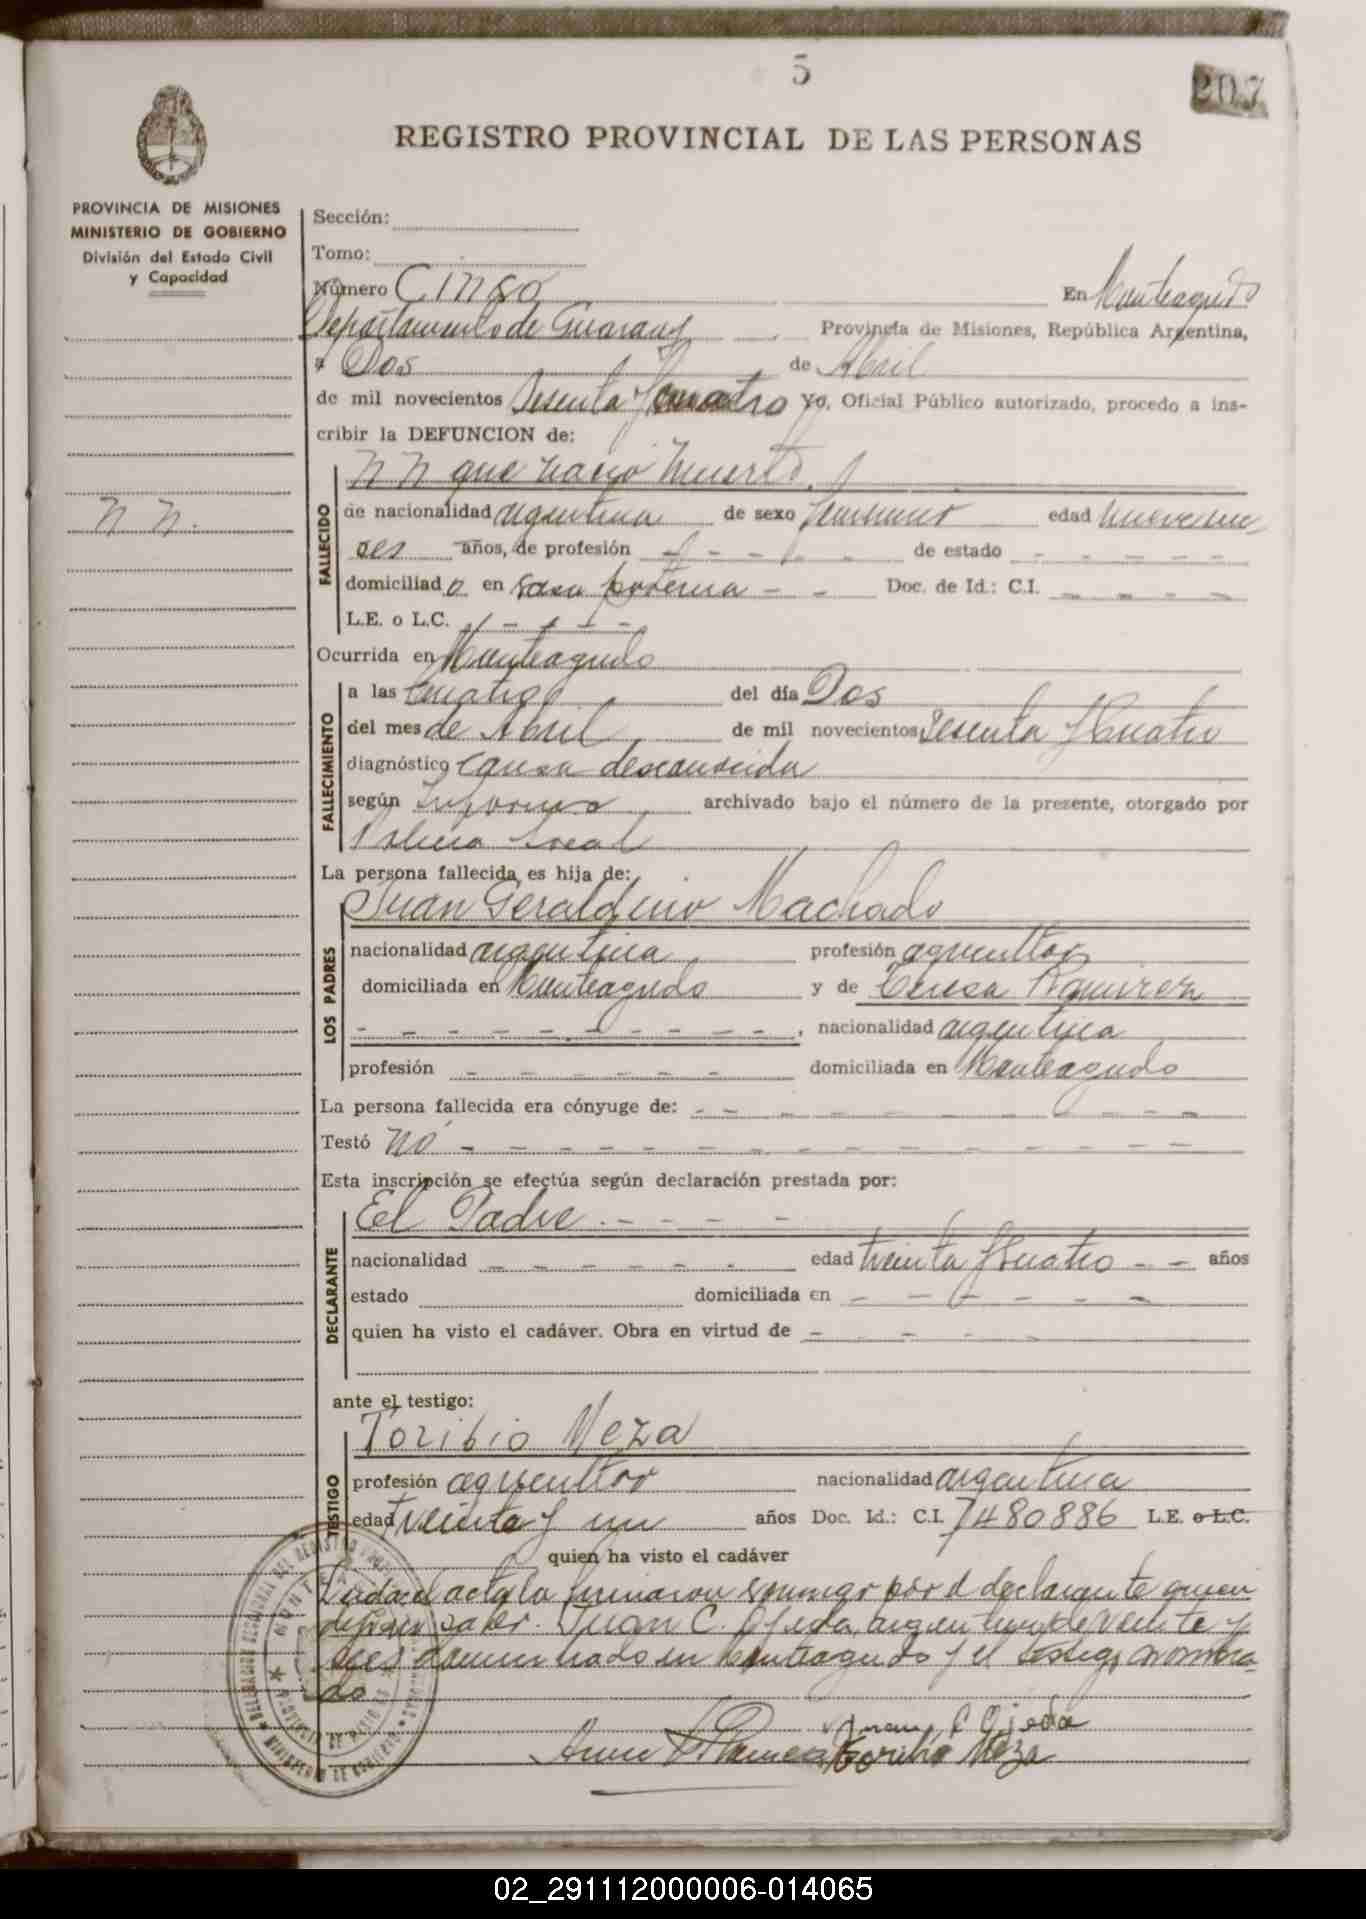 5
207
REGISTRO PROVINCIAL DE LAS PERSONAS
PROVINCIA DE MISIONES
MINISTERIO DE GOBIERNO
División del Estado Civil
y Capacidad
Sección:
Tomo:
Número Cinco En Monteagudo
Departamento de Guaraní Provincia de Misiones, República Argentina,
a Dos de Abril
de mil novecientos Sesenta y Cuatro Yo, Oficial Público autorizado, procedo a ins-
cribir la DEFUNCION de:
N N que nació muerto
N N.
FALLECIDO
de nacionalidad argentina de sexo femenino edad nueve me
ses años, de profesión de estado
domiciliado en casa paterna Doc. de Id.: C.I.
L.E. o L.C.
Ocurrida en Monteagudo
FALLECIMIENTO
a las cuatro del día Dos
del mes de Abril de mil novecientos Sesenta y Cuatro
diagnóstico Causa desconocida
según Informe archivado bajo el número de la presente, otorgado por
Policia Local
La persona fallecida es hija de:
Juan Geraldino Machado
LOS PADRES
nacionalidad argentina profesión agricultor
domiciliada en Monteagudo y de Teresa Ramirez
, nacionalidad argentina
profesión domiciliada en Monteagudo
La persona fallecida era cónyuge de:
Testó no
Esta inscripción se efectúa según declaración prestada por:
El Padre
DECLARANTE
nacionalidad edad treinta y Cuatro años
estado domiciliada en
quien ha visto el cadáver. Obra en virtud de
ante el testigo:
Toribio Meza
TESTIGO
profesión agricultor nacionalidad argentina
edad treinta y un años Doc. Id.: C.I. 7480886 L.E. o L.C.
quien ha visto el cadáver
Leida el acta la firmaron conmigo por el declarante quien
dijo no saber. Juan C. Ojeda, argentino de veinte y
domiciliado en Monteagudo y el testigo nombra-
do
Juan C Ojeda
Toribio Meza
02_291112000006-014065